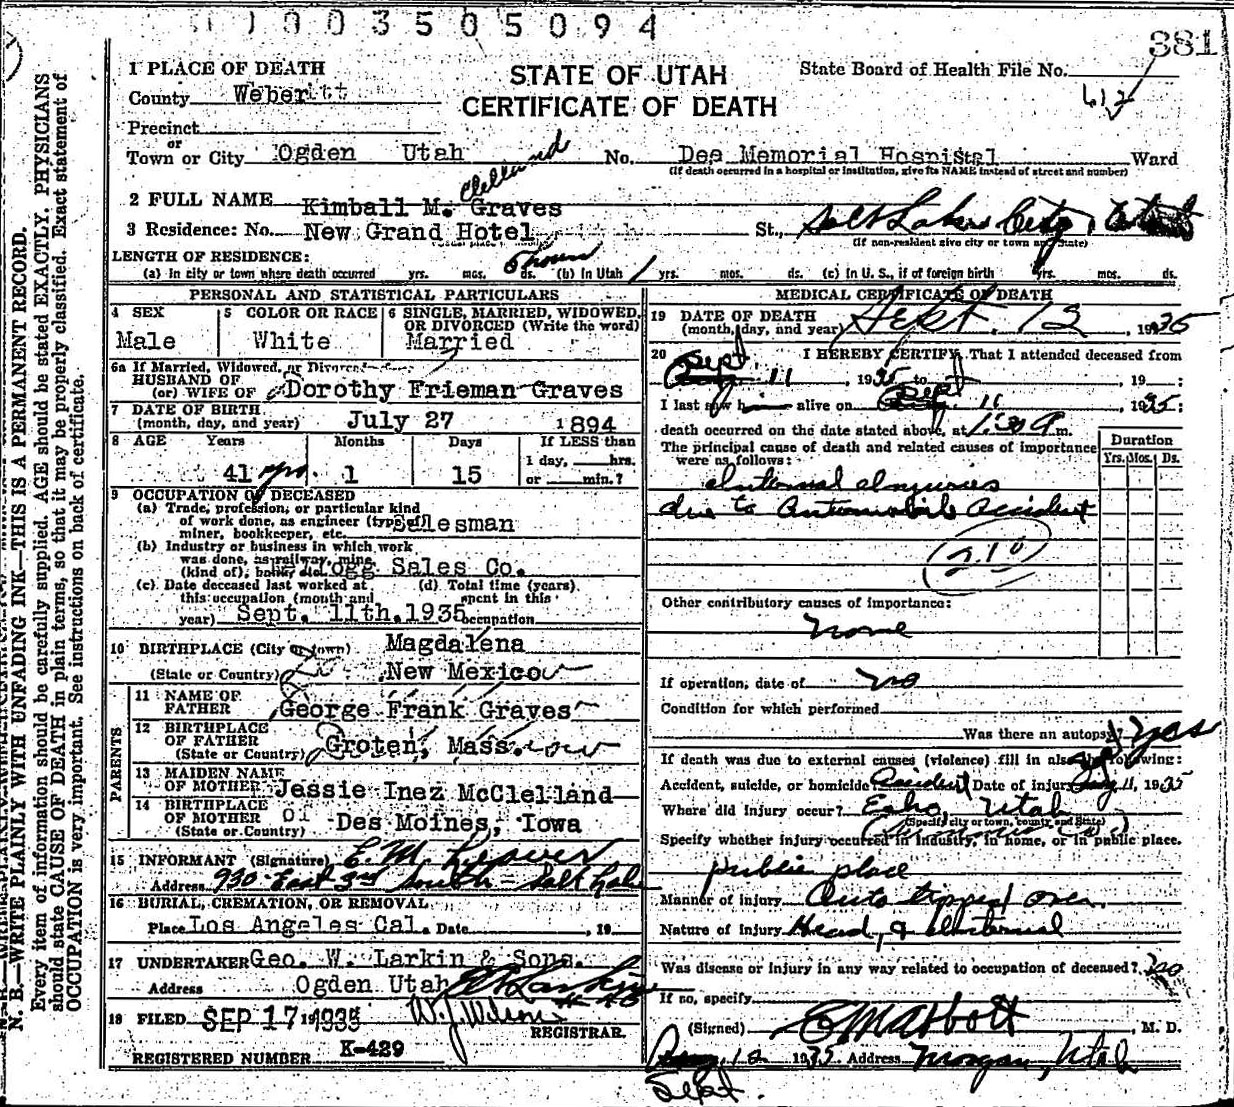 003505094
381
1 PLACE OF DEATH
STATE OF UTAH
State Board of Health File No.
County Weber
CERTIFICATE OF DEATH
612
Precinct
or
Town or City Ogden Utah No. Dee Memorial Hospistal Ward
(If death occurred in a hospital or institution, give its NAME instead of street and number)
Clelland
2 FULL NAME Kimball M. Graves
3 Residence: No. New Grand Hotel St., Salt Lake City, Utah
(If non-resident give city or town and State)
LENGTH OF RESIDENCE:
(a) In city or town where death occurred yrs. mos. ds. 5 hours (b) In Utah 1 yrs. mos. ds. (c) In U. S., if of foreign birth yrs. mos. ds.
PERSONAL AND STATISTICAL PARTICULARS
4 SEX
Male
5 COLOR OR RACE
White
6 SINGLE, MARRIED, WIDOWED, OR DIVORCED (Write the word)
Married
6a If Married, Widowed, or Divorced
HUSBAND OF
(or) WIFE OF Dorothy Frieman Graves
7 DATE OF BIRTH
(month, day, and year) July 27 1894
8 AGE Years Months Days If LESS than
41 yrs. 1 15 1 day, hrs.
or min.?
9 OCCUPATION OF DECEASED
(a) Trade, profession, or particular kind
of work done, as engineer (type of
miner, bookkeeper, etc. Salesman
(b) Industry or business in which work
was done, as railway, mine,
(kind of), bank, etc. Sales Co.
(c) Date deceased last worked at
this occupation (month and
year) Sept. 11th.1935
(d) Total time (years)
spent in this
occupation
10 BIRTHPLACE (City or town) Magdalena
(State or Country) New Mexico
PARENTS
11 NAME OF
FATHER George Frank Graves
12 BIRTHPLACE
OF FATHER
(State or Country) Groten, Mass.
13 MAIDEN NAME
OF MOTHER Jessie Inez McClelland
14 BIRTHPLACE
OF MOTHER Of Des Moines, Iowa
(State or Country)
15 INFORMANT (Signature) E. M.
Address 930 East 3rd South - Salt Lake
16 BURIAL, CREMATION, OR REMOVAL
Place Los Angeles Cal. Date , 19
17 UNDERTAKER Geo. W. Larkin & Sons.
Address Ogden Utah
18 FILED SEP 17 1935 W. J. Wilson
REGISTRAR.
REGISTERED NUMBER K-429
MEDICAL CERTIFICATE OF DEATH
19 DATE OF DEATH
(month, day, and year) Sept. 12, 1935
20 I HEREBY CERTIFY, That I attended deceased from
Sept 11, 1935 to Sept , 19 :
I last saw h alive on Sept 11, 1935:
death occurred on the date stated above, at 1:30 A m.
The principal cause of death and related causes of importance
were as follows:
Duration
Yrs. Mos. Ds.
Internal Injuries
due to Automobile Accident
210
Other contributory causes of importance:
None
If operation, date of no
Condition for which performed
Was there an autopsy? Yes
If death was due to external causes (violence) fill in also the following:
Accident, suicide, or homicide? Accident Date of injury 11, 1935
Where did injury occur? Echo, Utah
(Specify city or town, county and State)
Specify whether injury occurred in industry, in home, or in public place.
public place
Manner of injury Auto tipped over.
Nature of injury Head, & Internal
Was disease or injury in any way related to occupation of deceased? no
If no, specify
(Signed) E M Abbott, M. D.
12 1935 Address Morgan, Utah
Sept.
N. B.—WRITE PLAINLY WITH UNFADING INK—THIS IS A PERMANENT RECORD.
Every item of information should be carefully supplied. AGE should be stated EXACTLY. PHYSICIANS
should state CAUSE OF DEATH in plain terms, so that it may be properly classified. Exact statement of
OCCUPATION is very important. See instructions on back of certificate.